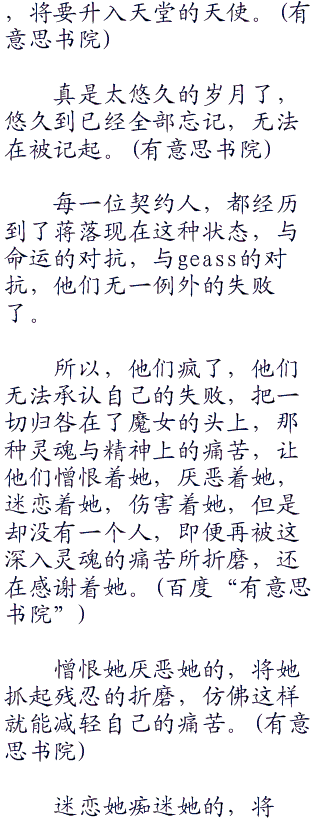 ，将要升入天堂的天使。(有
意思书院)
真是太悠久的岁月了，
悠久到已经全部忘记，无法
在被记起。(有意思书院)
每一位契约人，都经历
到了蒋落现在这种状态，与
命运的对抗，与geass的对
抗，他们无一例外的失败
了。
所以，他们疯了，他们
无法承认自己的失败，把一
切归咎在了魔女的头上，那
种灵魂与精神上的痛苦，让
他们憎恨着她，厌恶着她，
迷恋着她，伤害着她，但是
却没有一个人，即便再被这
深入灵魂的痛苦所折磨，还
在感谢着她。(百度“有意思
书院”)
憎恨她厌恶她的，将她
抓起残忍的折磨，仿佛这样
就能减轻自己的痛苦。(有意
思书院)
迷恋她痴迷她的，将